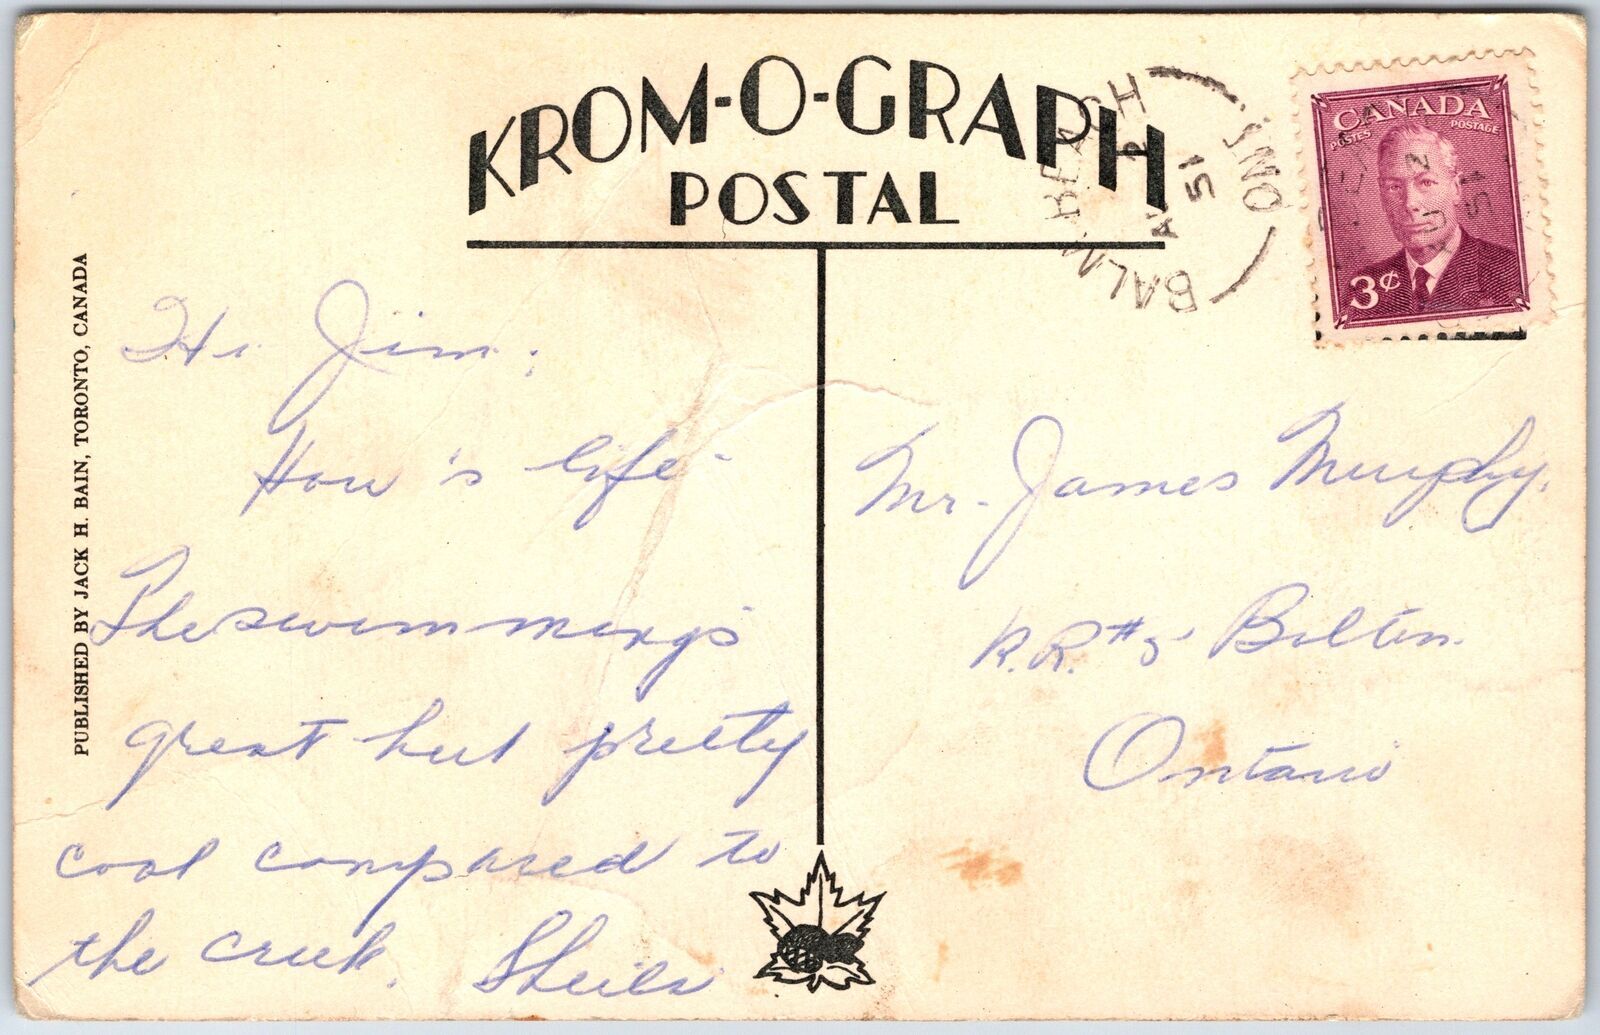 KROM-O-GRAPH
POSTAL
PUBLISHED BY JACK H. BAIN, TORONTO, CANADA
BALM BEACH
ONT.
51
CANADA
POSTES POSTAGE
3¢
Hi Jim,
How's life
The swimming's
great but pretty
cool compared to
the creek. Sheila
Mr. James Murphy,
R.R. #5 Bolton
Ontario